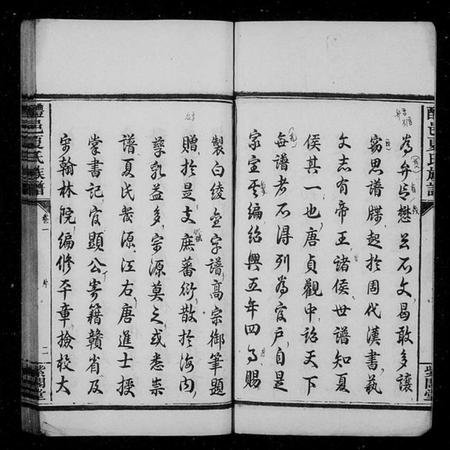 醴邑夏氏族譜
為弁言懋公不文曷敢多讓
窃思譜牒起於周代漢書藝
文志有帝王諸侯世譜知夏
侯其一也唐貞觀中詔天下
每譜者不得列為官戶自是
家室編紹興五年四月賜
紫閣堂
製白綾金字譜高宗御筆題
贈於是支庶蕃衍散於海內
孳乳益多宗源莫之或悉崇
譜夏氏發源江右唐進士授
掌書記官顯公寄籍贛省及
宋翰林院編修平章檢校大
醴邑夏氏族譜
卷一
二
紫閣堂